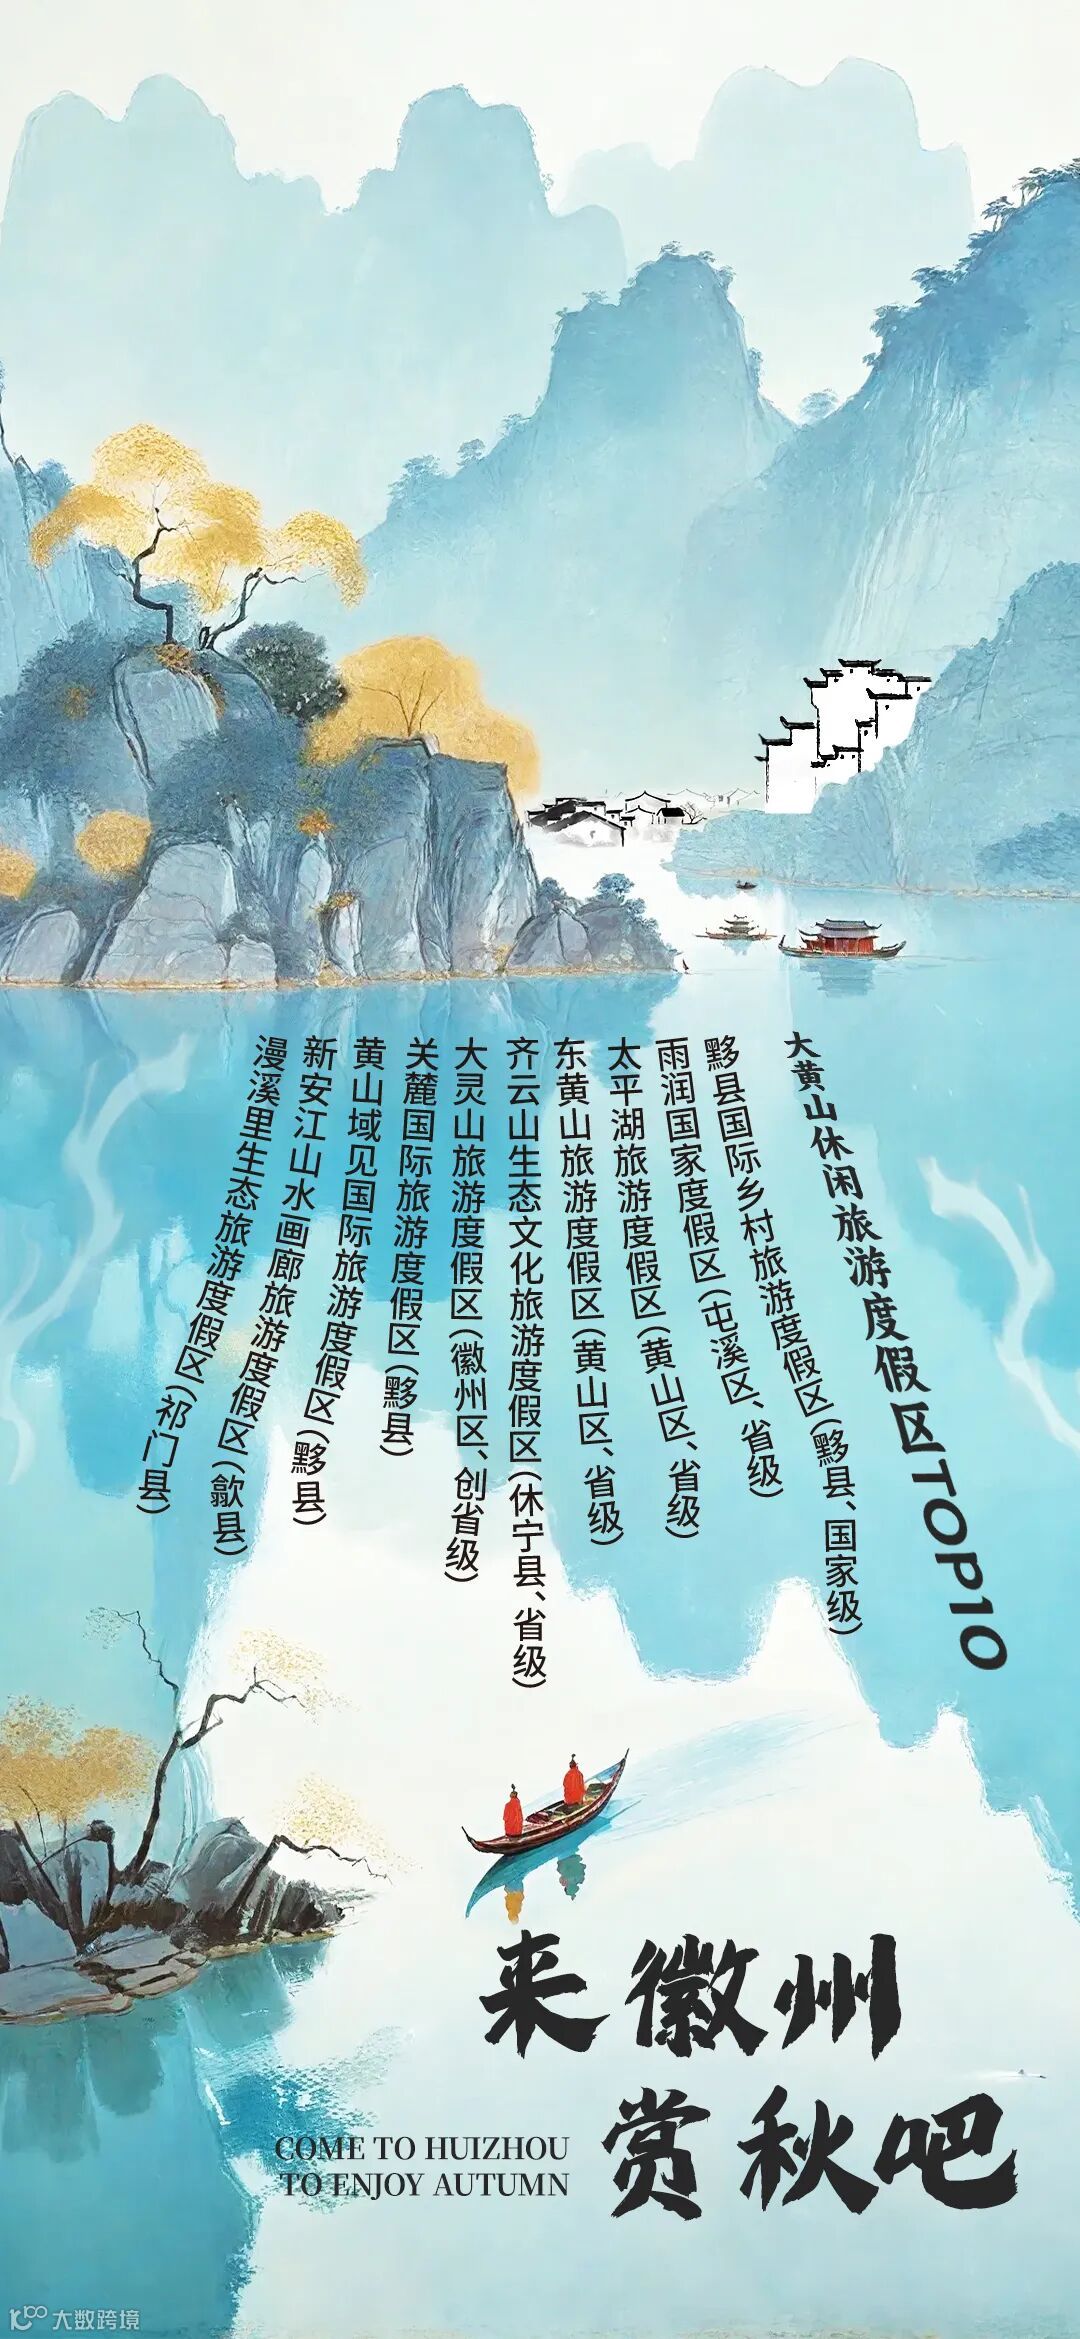 大黄山休闲旅游度假区TOP10
黟县国际乡村旅游度假区(黟县、国家级)
雨润国家度假区(屯溪区、省级)
太平湖旅游度假区(黄山区、省级)
东黄山旅游度假区(黄山区、省级)
齐云山生态文化旅游度假区(休宁县、省级)
大灵山旅游度假区(徽州区、创省级)
关麓国际旅游度假区(黟县)
黄山域见国际旅游度假区(黟县)
新安江山水画廊旅游度假区(歙县)
漫溪里生态旅游度假区(祁门县)
来徽州
赏秋吧
COME TO HUIZHOU
TO ENJOY AUTUMN
大数跨境